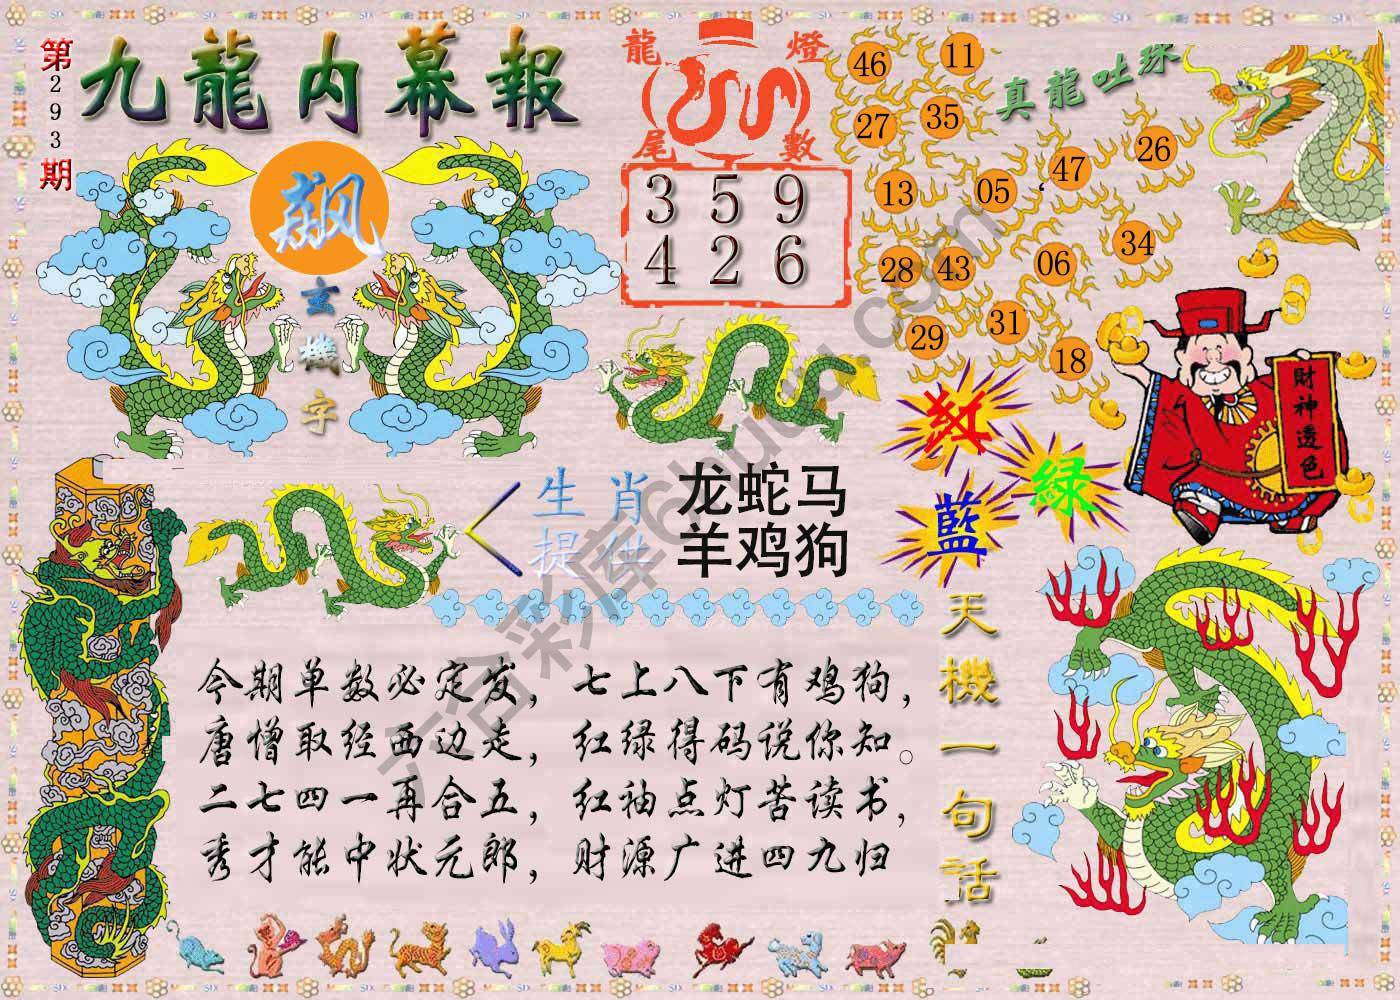 第293期
九龍内幕報
飙
玄機字
龍燈
尾數
3 5 9
4 2 6
真龍吐珠
46 11
27 35
13 05 47 26
28 43 06 34
29 31 18
財神透色
紅
藍
緑
生肖
提供
龙蛇马
羊鸡狗
天機一句話
今期单数必定发，七上八下有鸡狗，
唐憎取经西边走，红绿得码说你知。
二七四一再合五，红袖点灯苦读书，
秀才能中状元郎，财源广进四九归
六合彩库6huuu.com